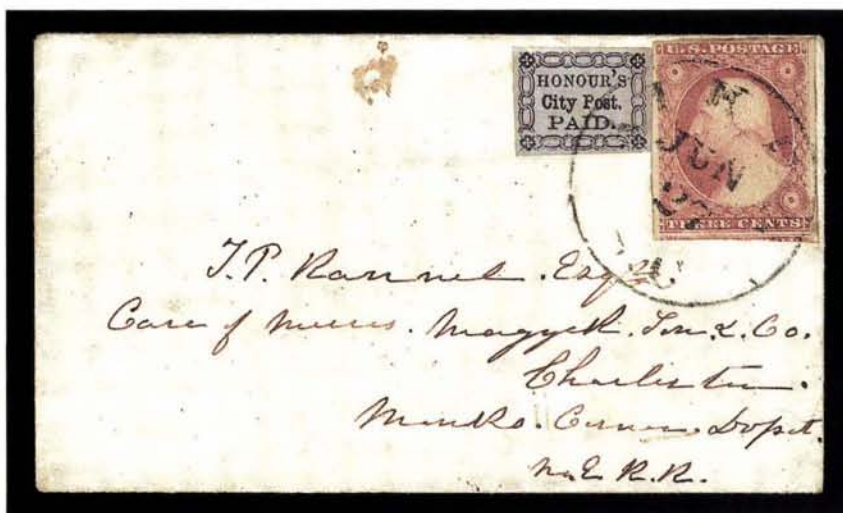 HONOUR'S
City Post.
PAID.
U.S. POSTAGE
THREE CENTS
JUN
J.P. Rannel. Esqr
Care of Messrs. Magyck. Son & Co.
Charleston.
Monks. Corner. Depot.
N.E.R.R.